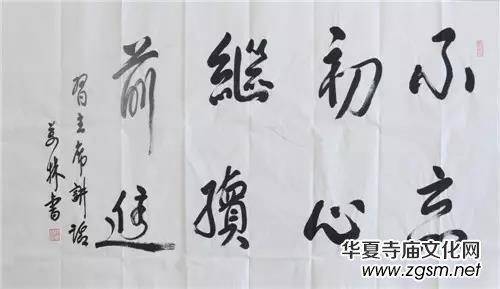 不忘
初心
繼續
前進
習主席講話
林書
华夏寺庙文化网
www.zgsm.net